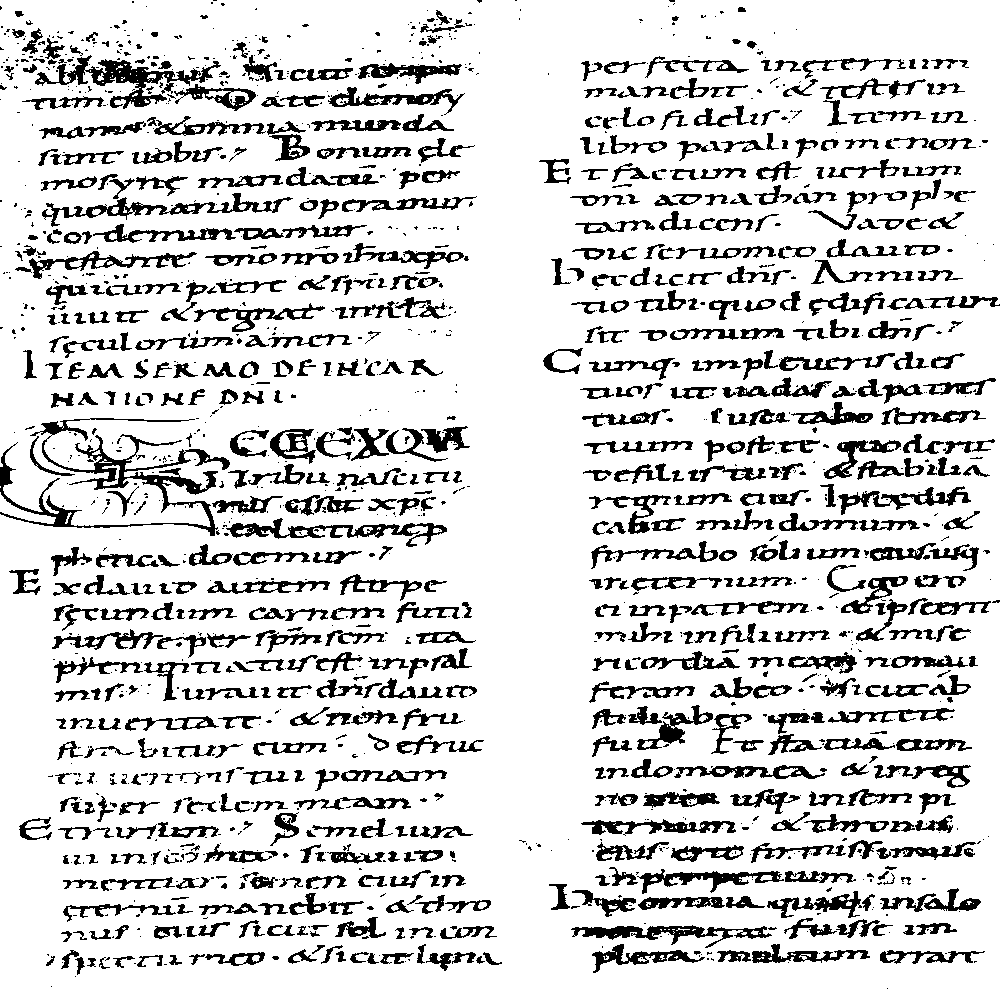 abluamus. Sicut scrip
tum est Date elemosy
nam & omnia munda
sunt uobis. Bonum ęle
mosynę mandatū. per
quod manibus operamur
cordemundamur.
prestante dn̄o nr̄o ihu xp̄o.
qui cum patre & sp̄u sc̄o.
uiuit & regnat in secła
sęculorum. amen.
ITEM SERMO DE INCAR
NATIONE DN̄I.
Tribu nascitu
rus esset xp̄c.
ex lectione p
phetica docemur.
Ex dauid autem stirpe
sęcundum carnem futū
rus esse. per sp̄m sc̄m ita
prenuntiatus est in psal
mis. Iurauit dn̄s dauid
in ueritate. & non fru
strabitur eum. De fruc
tu uentris tui ponam
super sedem meam.
Et rursum. Semel iura
ui in sc̄o meo. si dauid
mentiar. semen eius in
ęternū manebit. & thro
nus eius sicut sol in con
spectu meo. & sicut luna
perfecta in ęternum
manebit. & testis in
celo fidelis. Item in
libro paralipomenon.
Et factum est uerbum
dn̄i ad nathan prophe
tam dicens. Vade &
dic seruo meo dauid.
Hec dicit dn̄s. Annun
tio tibi. quod ędificaturus
sit domum tibi dn̄s.
Cumq. impleueris dies
tuos ut uadas ad patres
tuos. suscitabo semen
tuum post te. quod erit
de filiis tuis. & stabilia
regnum eius. Ipse ędifi
cabit mihi domum. &
firmabo solium eius usq.
in ęternum. Ego ero
ei in patrem. & ipse erit
mihi in filium. & mise
ricordiā meam non au
feram ab eo. sicut ab
stuli ab eo qui ante te
fuit. Et statuā eum
in domo mea. & in reg
no meo usq. in sempi
ternum. & thronus
eius erit firmissimus
in perpetuum
Hec omnia quisquis in salo
mone putat fuisse im
pleta. multum errare